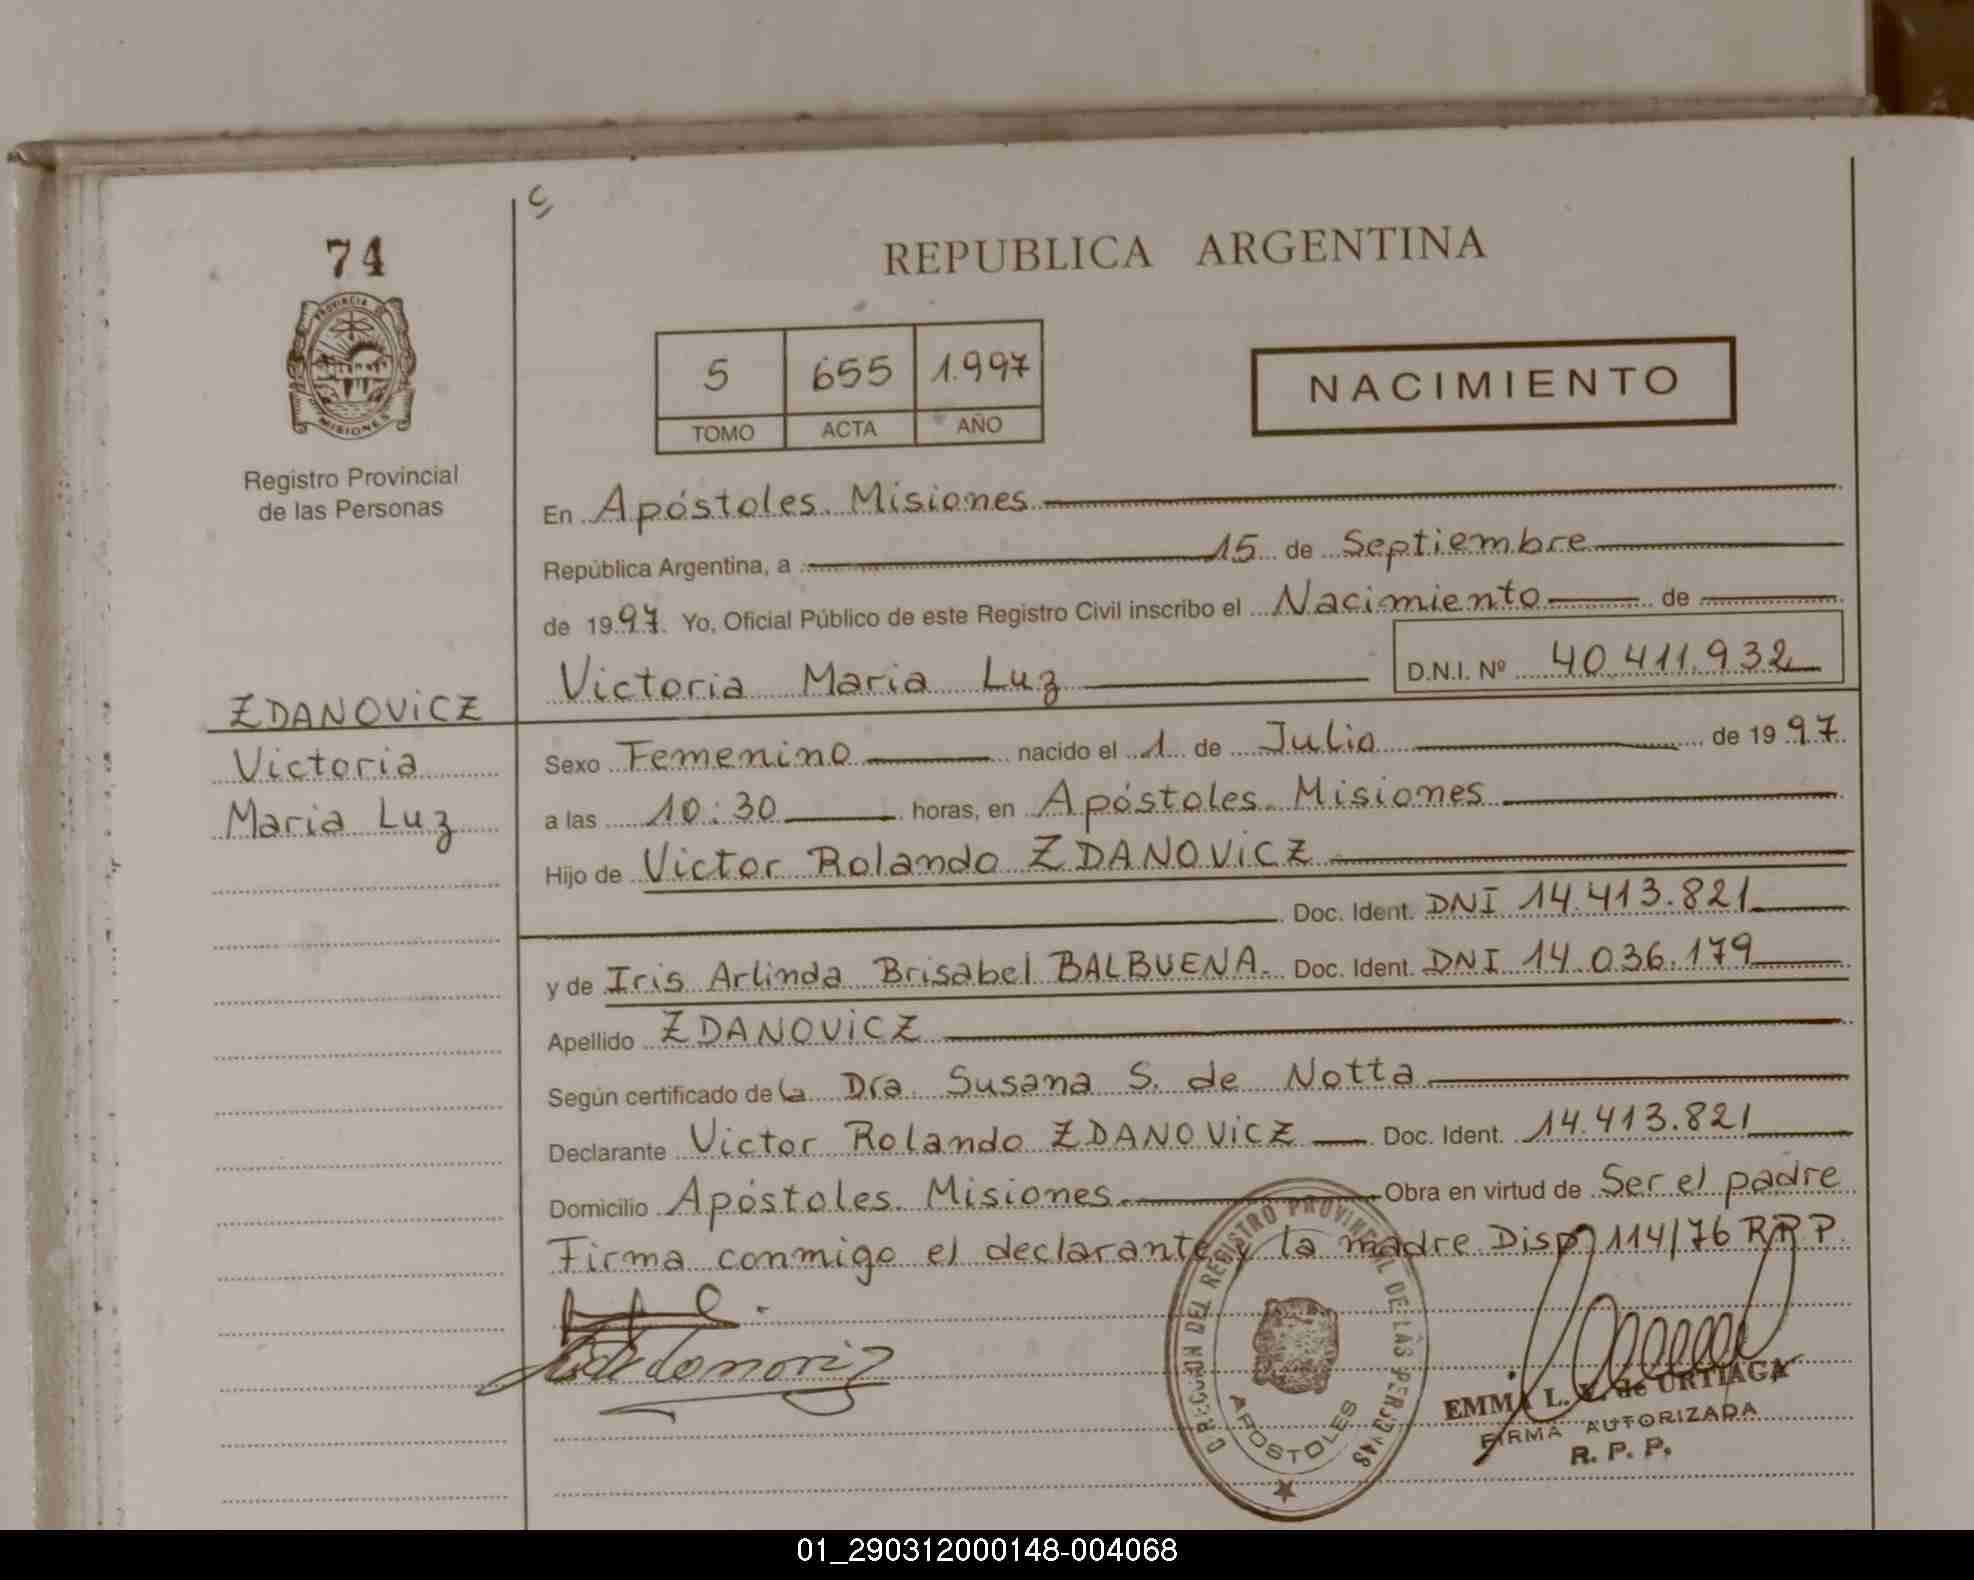 74
PROVINCIA
MISIONES
Registro Provincial
de las Personas
REPUBLICA ARGENTINA
5 655 1.997
TOMO ACTA AÑO
NACIMIENTO
En Apóstoles. Misiones
República Argentina, a 15 de Septiembre
de 1997. Yo, Oficial Público de este Registro Civil inscribo el Nacimiento de
Victoria Maria Luz D.N.I. Nº 40.411.932
ZDANOVICZ
Victoria
Maria Luz
Sexo Femenino nacido el 1 de Julio de 1997
a las 10:30 horas, en Apóstoles. Misiones
Hijo de Victor Rolando ZDANOVICZ
Doc. Ident. DNI 14.413.821
y de Iris Arlinda Brisabel BALBUENA. Doc. Ident. DNI 14.036.179
Apellido ZDANOVICZ
Según certificado de la Dra. Susana S. de Notta
Declarante Victor Rolando ZDANOVICZ Doc. Ident. 14.413.821
Domicilio Apóstoles. Misiones. Obra en virtud de Ser el padre
Firma conmigo el declarante y la madre Disp. 114/76 R.P.P.
DIRECCION DEL REGISTRO PROVINCIAL DE LAS PERSONAS
APOSTOLES
EMMA L. de URTIAGA
FIRMA AUTORIZADA
R. P. P.
01_290312000148-004068